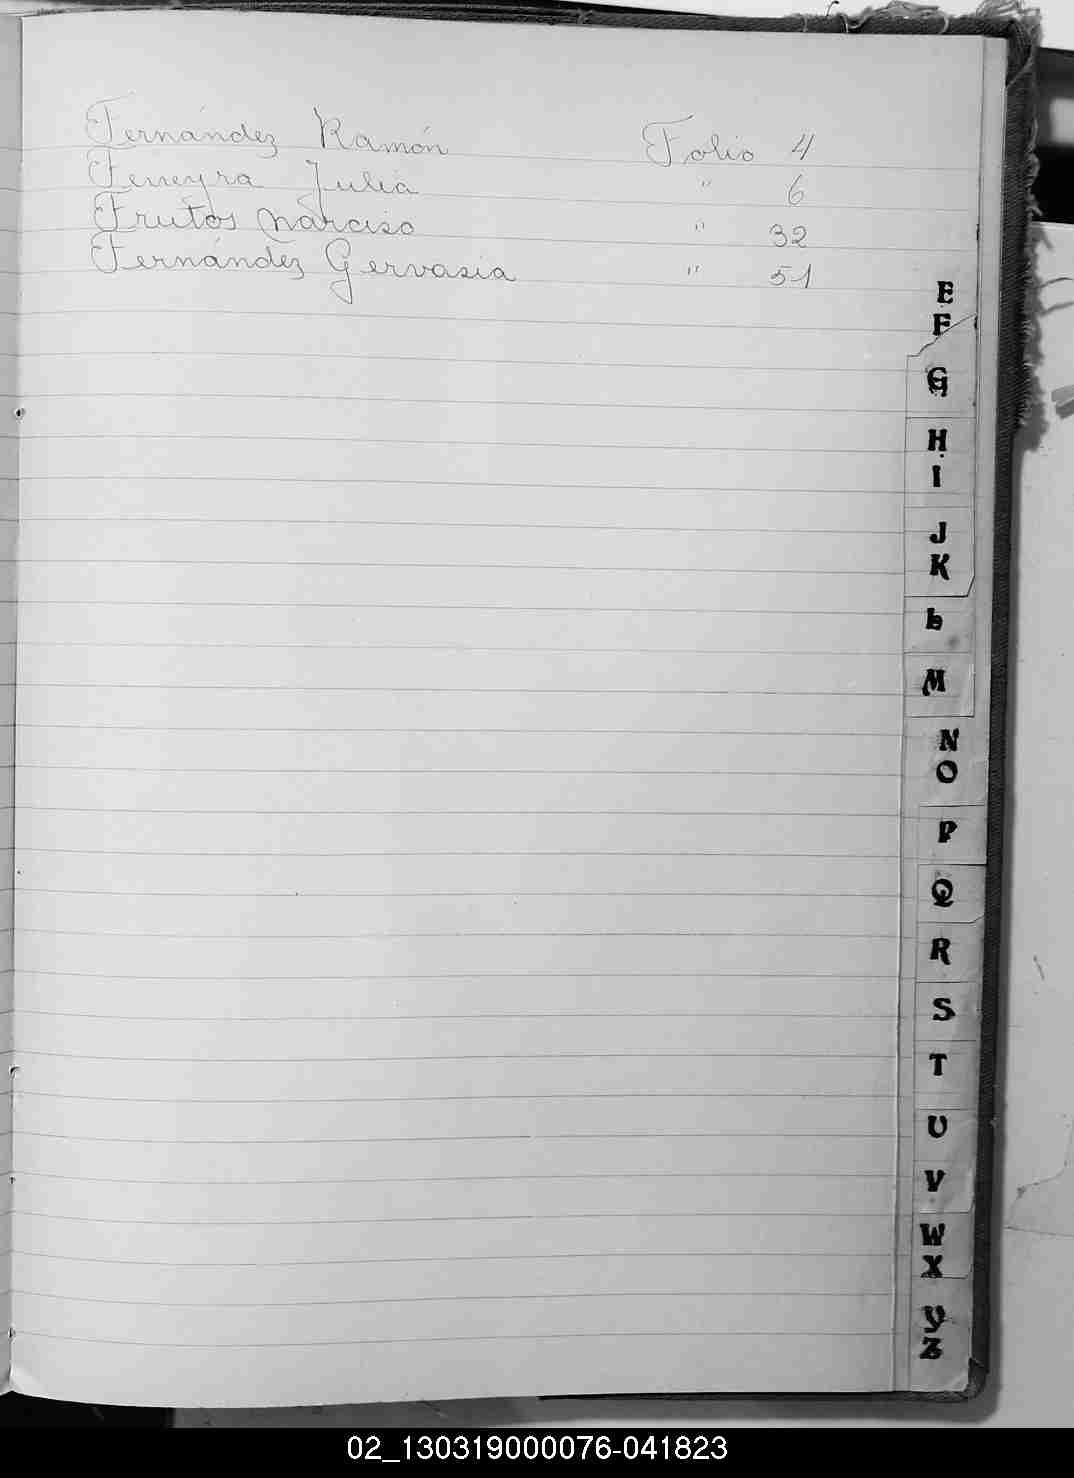 Fernández Ramón Folio 4
Ferreyra Julia " 6
Frutos Narciso " 32
Fernández Gervasia " 51
E
F
G
H
I
J
K
L
M
N
O
P
Q
R
S
T
U
V
W
X
Y
Z
02_130319000076-041823